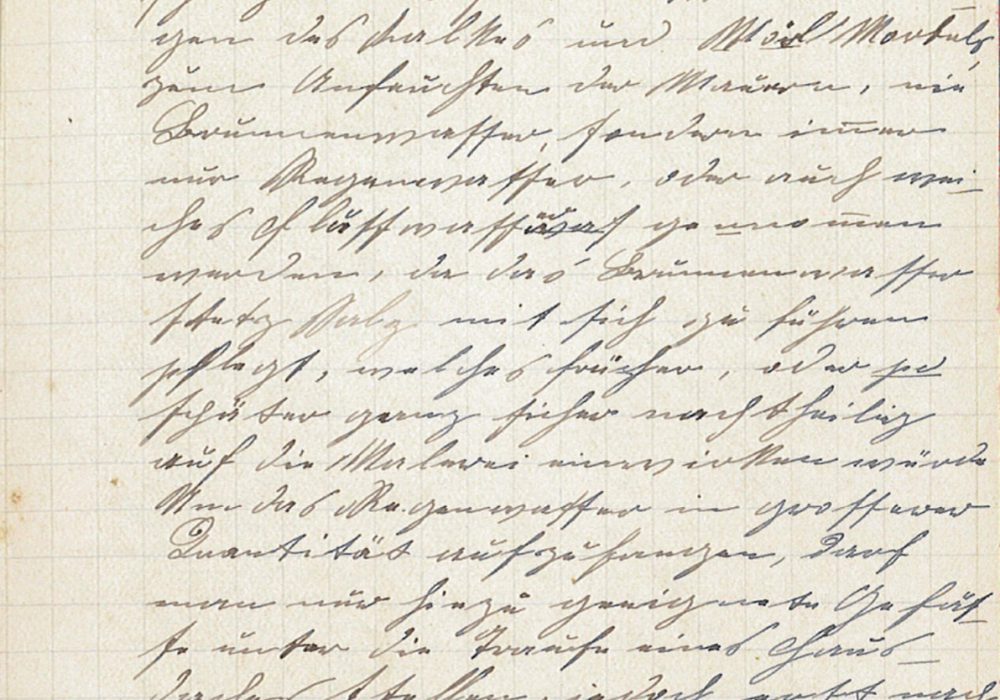 gen des Kalkes und Mörtels
zum Anfeuchten der Mauern, nie
Brunnenwasser, sondern immer
nur Regenwasser, oder auch wei-
ches Flusswasser genommen
werden, da das Brunnenwasser
stetz Salz mit sich zu führen
pflegt, welches früher, oder
später ganz sicher nachtheilig
auf die Malerei einwirken würde
Um das Regenwasser in grosserer
Quantität aufzufangen, darf
man nur hiezu geeignete Gefäs-
se unter die Traufe eines Haus-
daches stellen, jedoch erst nach